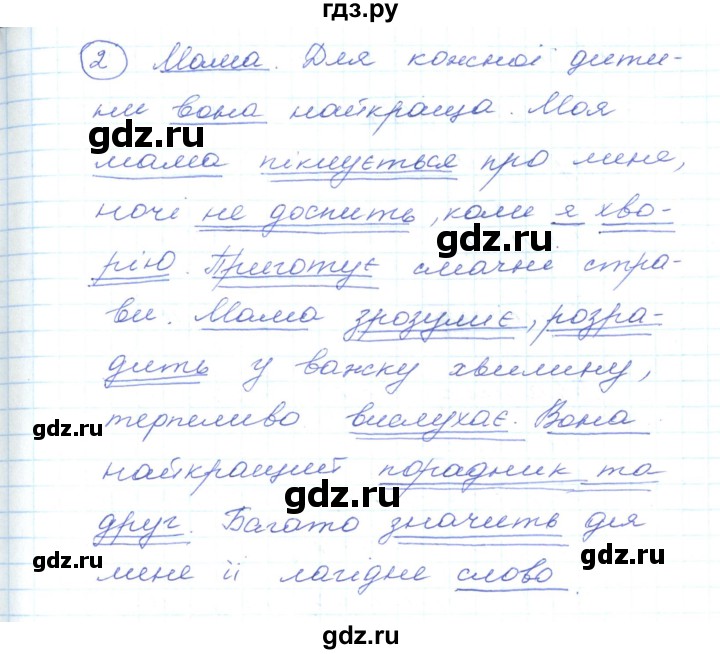 гдз.ру
2 Мама. Для кожної дити-
ни вона найкраща. Моя
gdz.ru
мама піклується про мене,
ночі не доспить, коли я хво-
gdz.ru
рію. Приготує смачні стра-
ви. Мама зрозуміє, розра-
дить у важку хвилину,
терпеливо вислухає. Вона
gdz.ru
gdz.ru
найкращий порадник та
gdz.ru
друг. Багато значить для
мене її лагідне слово.
gdz.ru
gdz.ru
gdz.ru